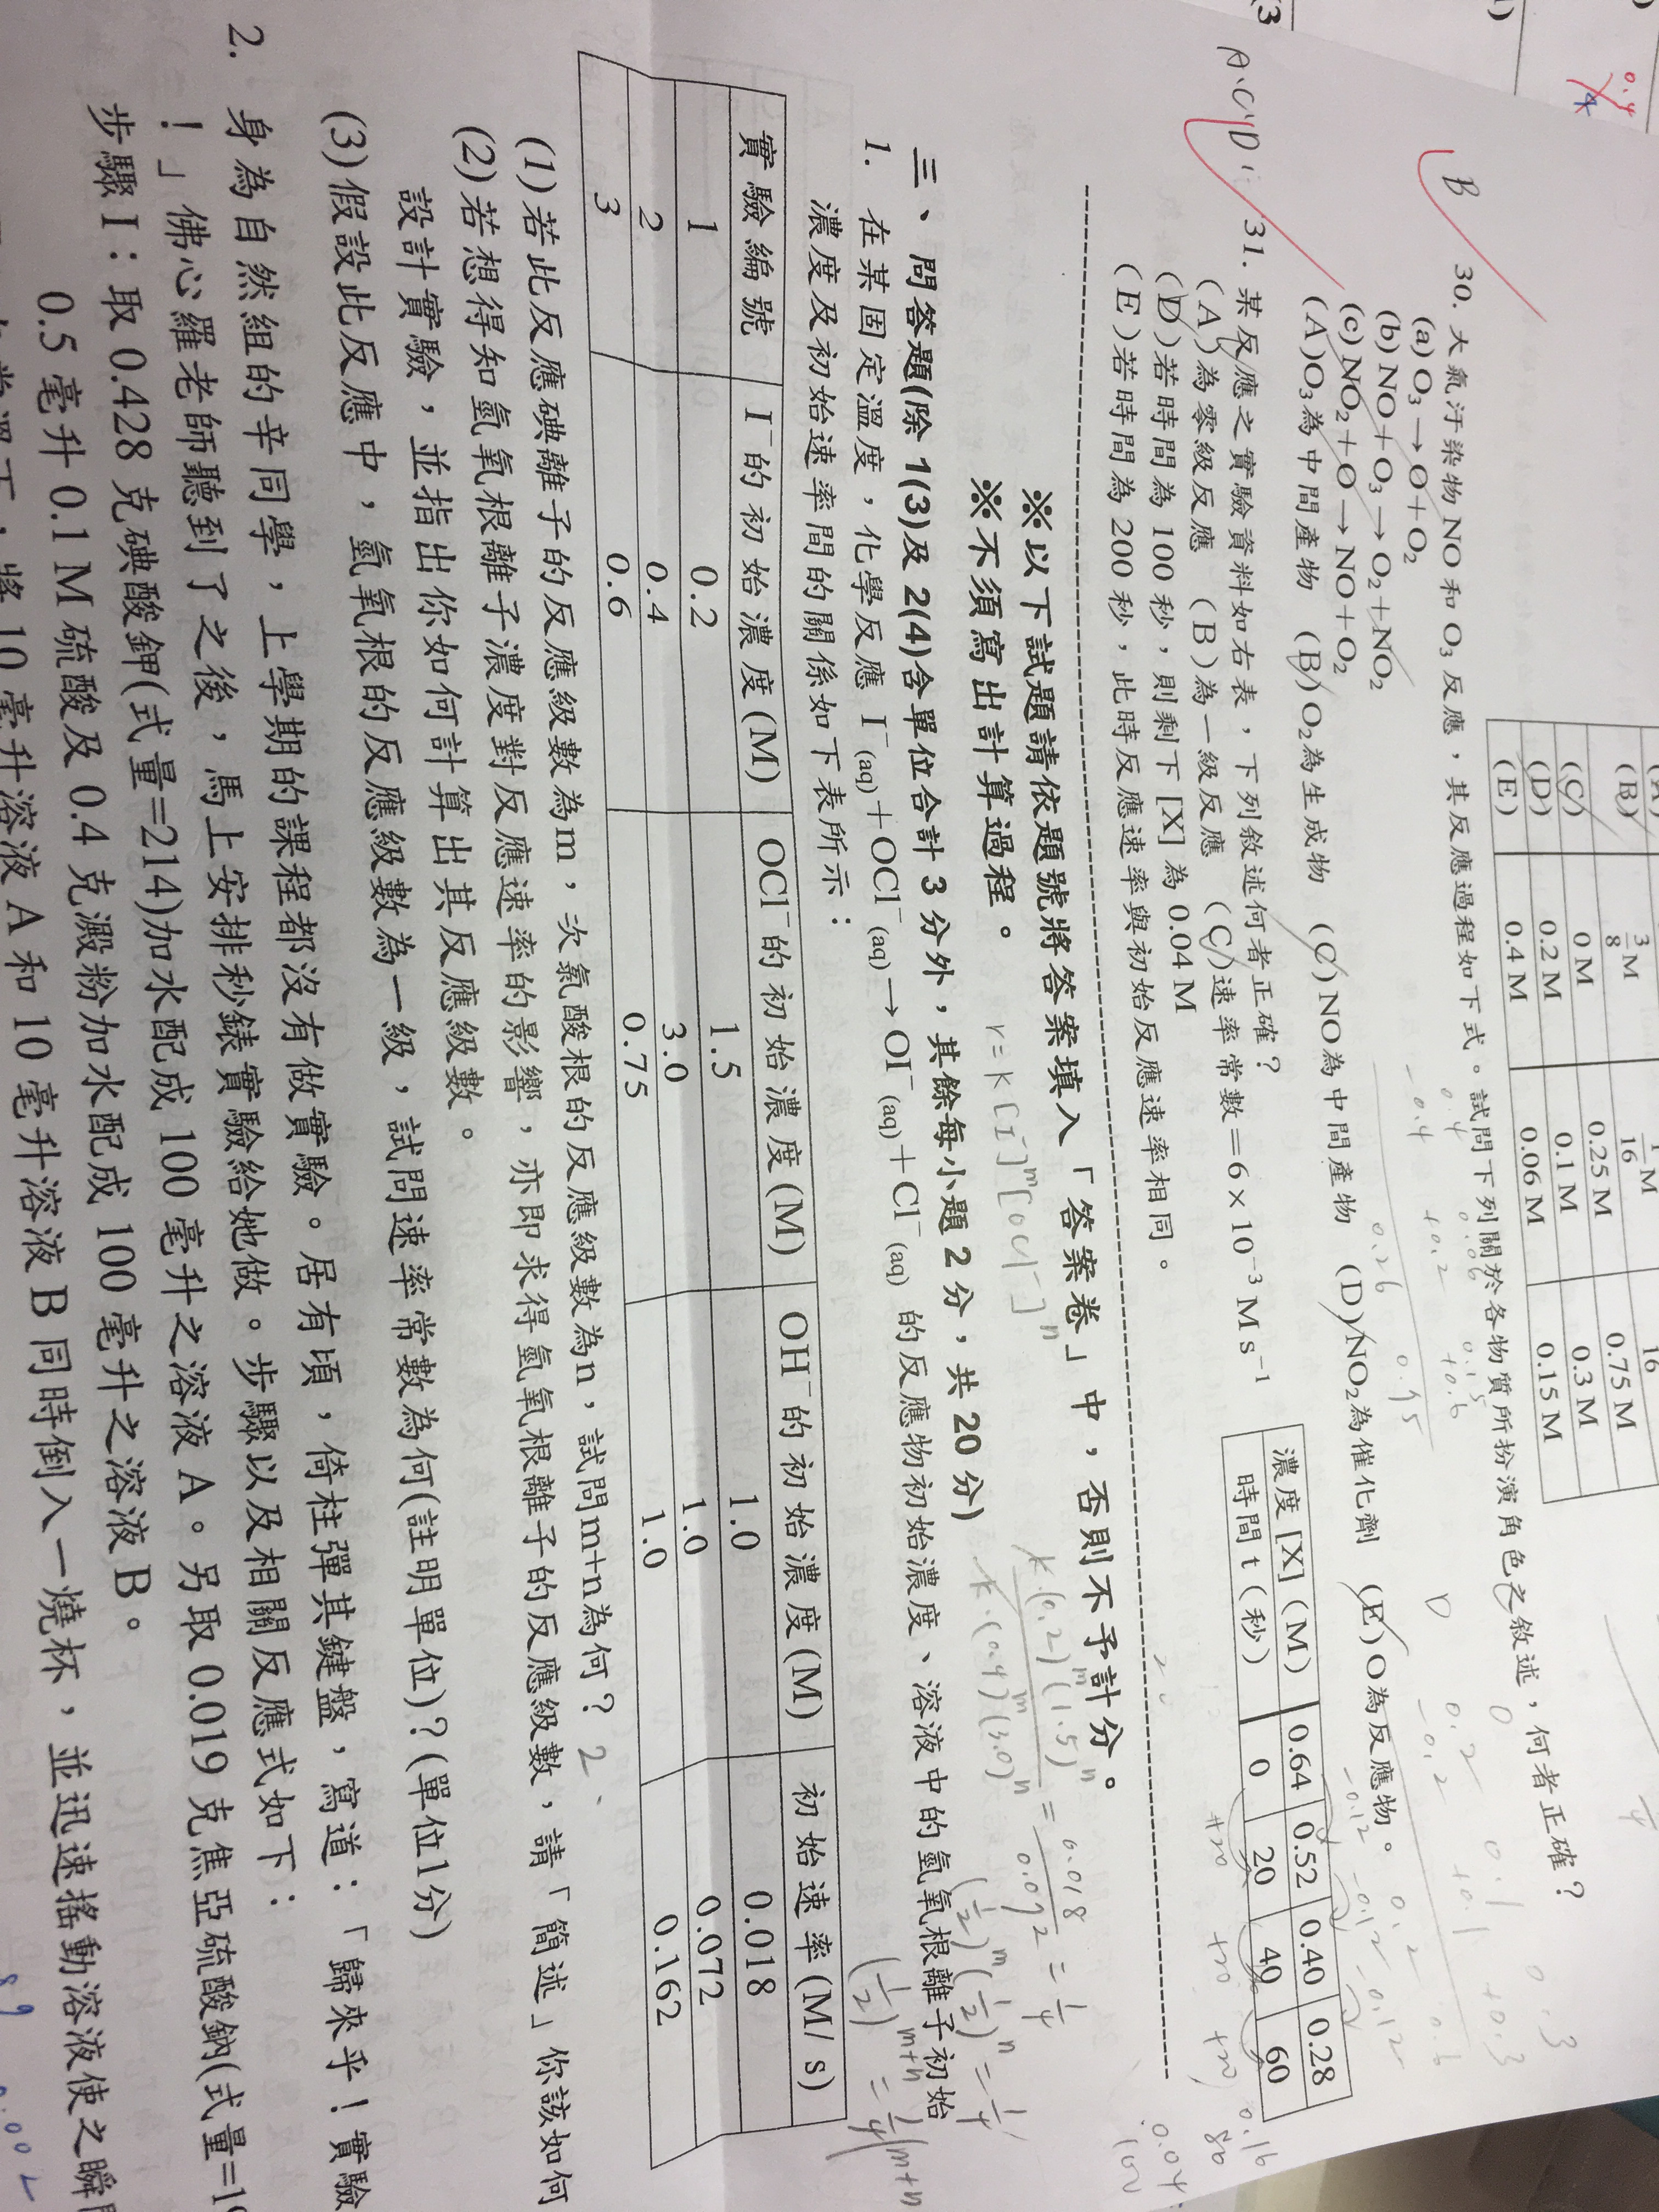 (A)
(B) 3/8 M 1/16 M 16
(C) 0 M 0.25 M 0.75 M
(D) 0.2 M 0.1 M 0.3 M
(E) 0.4 M 0.06 M 0.15 M
B
30. 大氣汙染物 NO 和 O₃ 反應，其反應過程如下式。試問下列關於各物質所扮演角色之敘述，何者正確？
(a) O₃ → O + O₂
(b) NO + O₃ → O₂ + NO₂
(c) NO₂ + O → NO + O₂
(A) O₃為中間產物 (B) O₂為生成物 (C) NO為中間產物 (D) NO₂為催化劑 (E) O為反應物。
A.C.D
31. 某反應之實驗資料如右表，下列敘述何者正確？
(A)為零級反應 (B)為一級反應 (C)速率常數＝6×10⁻³ M s⁻¹
(D)若時間為 100 秒，則剩下 [X] 為 0.04 M
(E)若時間為 200 秒，此時反應速率與初始反應速率相同。
濃度 [X] (M) 0.64 0.52 0.40 0.28
時間 t (秒) 0 20 40 60
※以下試題請依題號將答案填入「答案卷」中，否則不予計分。
※不須寫出計算過程。
r = k[I⁻]ᵐ[OCl⁻]ⁿ
k·(0.2)ᵐ(1.5)ⁿ / k·(0.4)ᵐ(3.0)ⁿ = 0.018/0.072 = 1/4
(1/2)ᵐ(1/2)ⁿ = 1/4
(1/2)ᵐ⁺ⁿ = 1/4
三、問答題(除 1(3)及 2(4)含單位合計 3 分外，其餘每小題 2 分，共 20 分)
1. 在某固定溫度，化學反應 I⁻(aq)＋OCl⁻(aq)→OI⁻(aq)＋Cl⁻(aq) 的反應物初始濃度、溶液中的氫氧根離子初始
濃度及初始速率間的關係如下表所示：
實驗編號 I⁻的初始濃度(M) OCl⁻的初始濃度(M) OH⁻的初始濃度(M) 初始速率(M/s)
1 0.2 1.5 1.0 0.018
2 0.4 3.0 1.0 0.072
3 0.6 0.75 1.0 0.162
(1)若此反應碘離子的反應級數為m，次氯酸根的反應級數為n，試問m+n為何？ 2
(2)若想得知氫氧根離子濃度對反應速率的影響，亦即求得氫氧根離子的反應級數，請「簡述」你該如何
設計實驗，並指出你如何計算出其反應級數。
(3)假設此反應中，氫氧根的反應級數為一級，試問速率常數為何(註明單位)？(單位1分)
2. 身為自然組的辛同學，上學期的課程都沒有做實驗。居有頃，倚柱彈其鍵盤，寫道：「歸來乎！實驗
！」佛心羅老師聽到了之後，馬上安排秒錶實驗給她做。步驟以及相關反應式如下：
步驟 I：取 0.428 克碘酸鉀(式量=214)加水配成 100 毫升之溶液 A。另取 0.019 克焦亞硫酸鈉(式量=19
0.5 毫升 0.1 M 硫酸及 0.4 克澱粉加水配成 100 毫升之溶液 B。
將 10 毫升溶液 A 和 10 毫升溶液 B 同時倒入一燒杯，並迅速搖動溶液使之瞬間